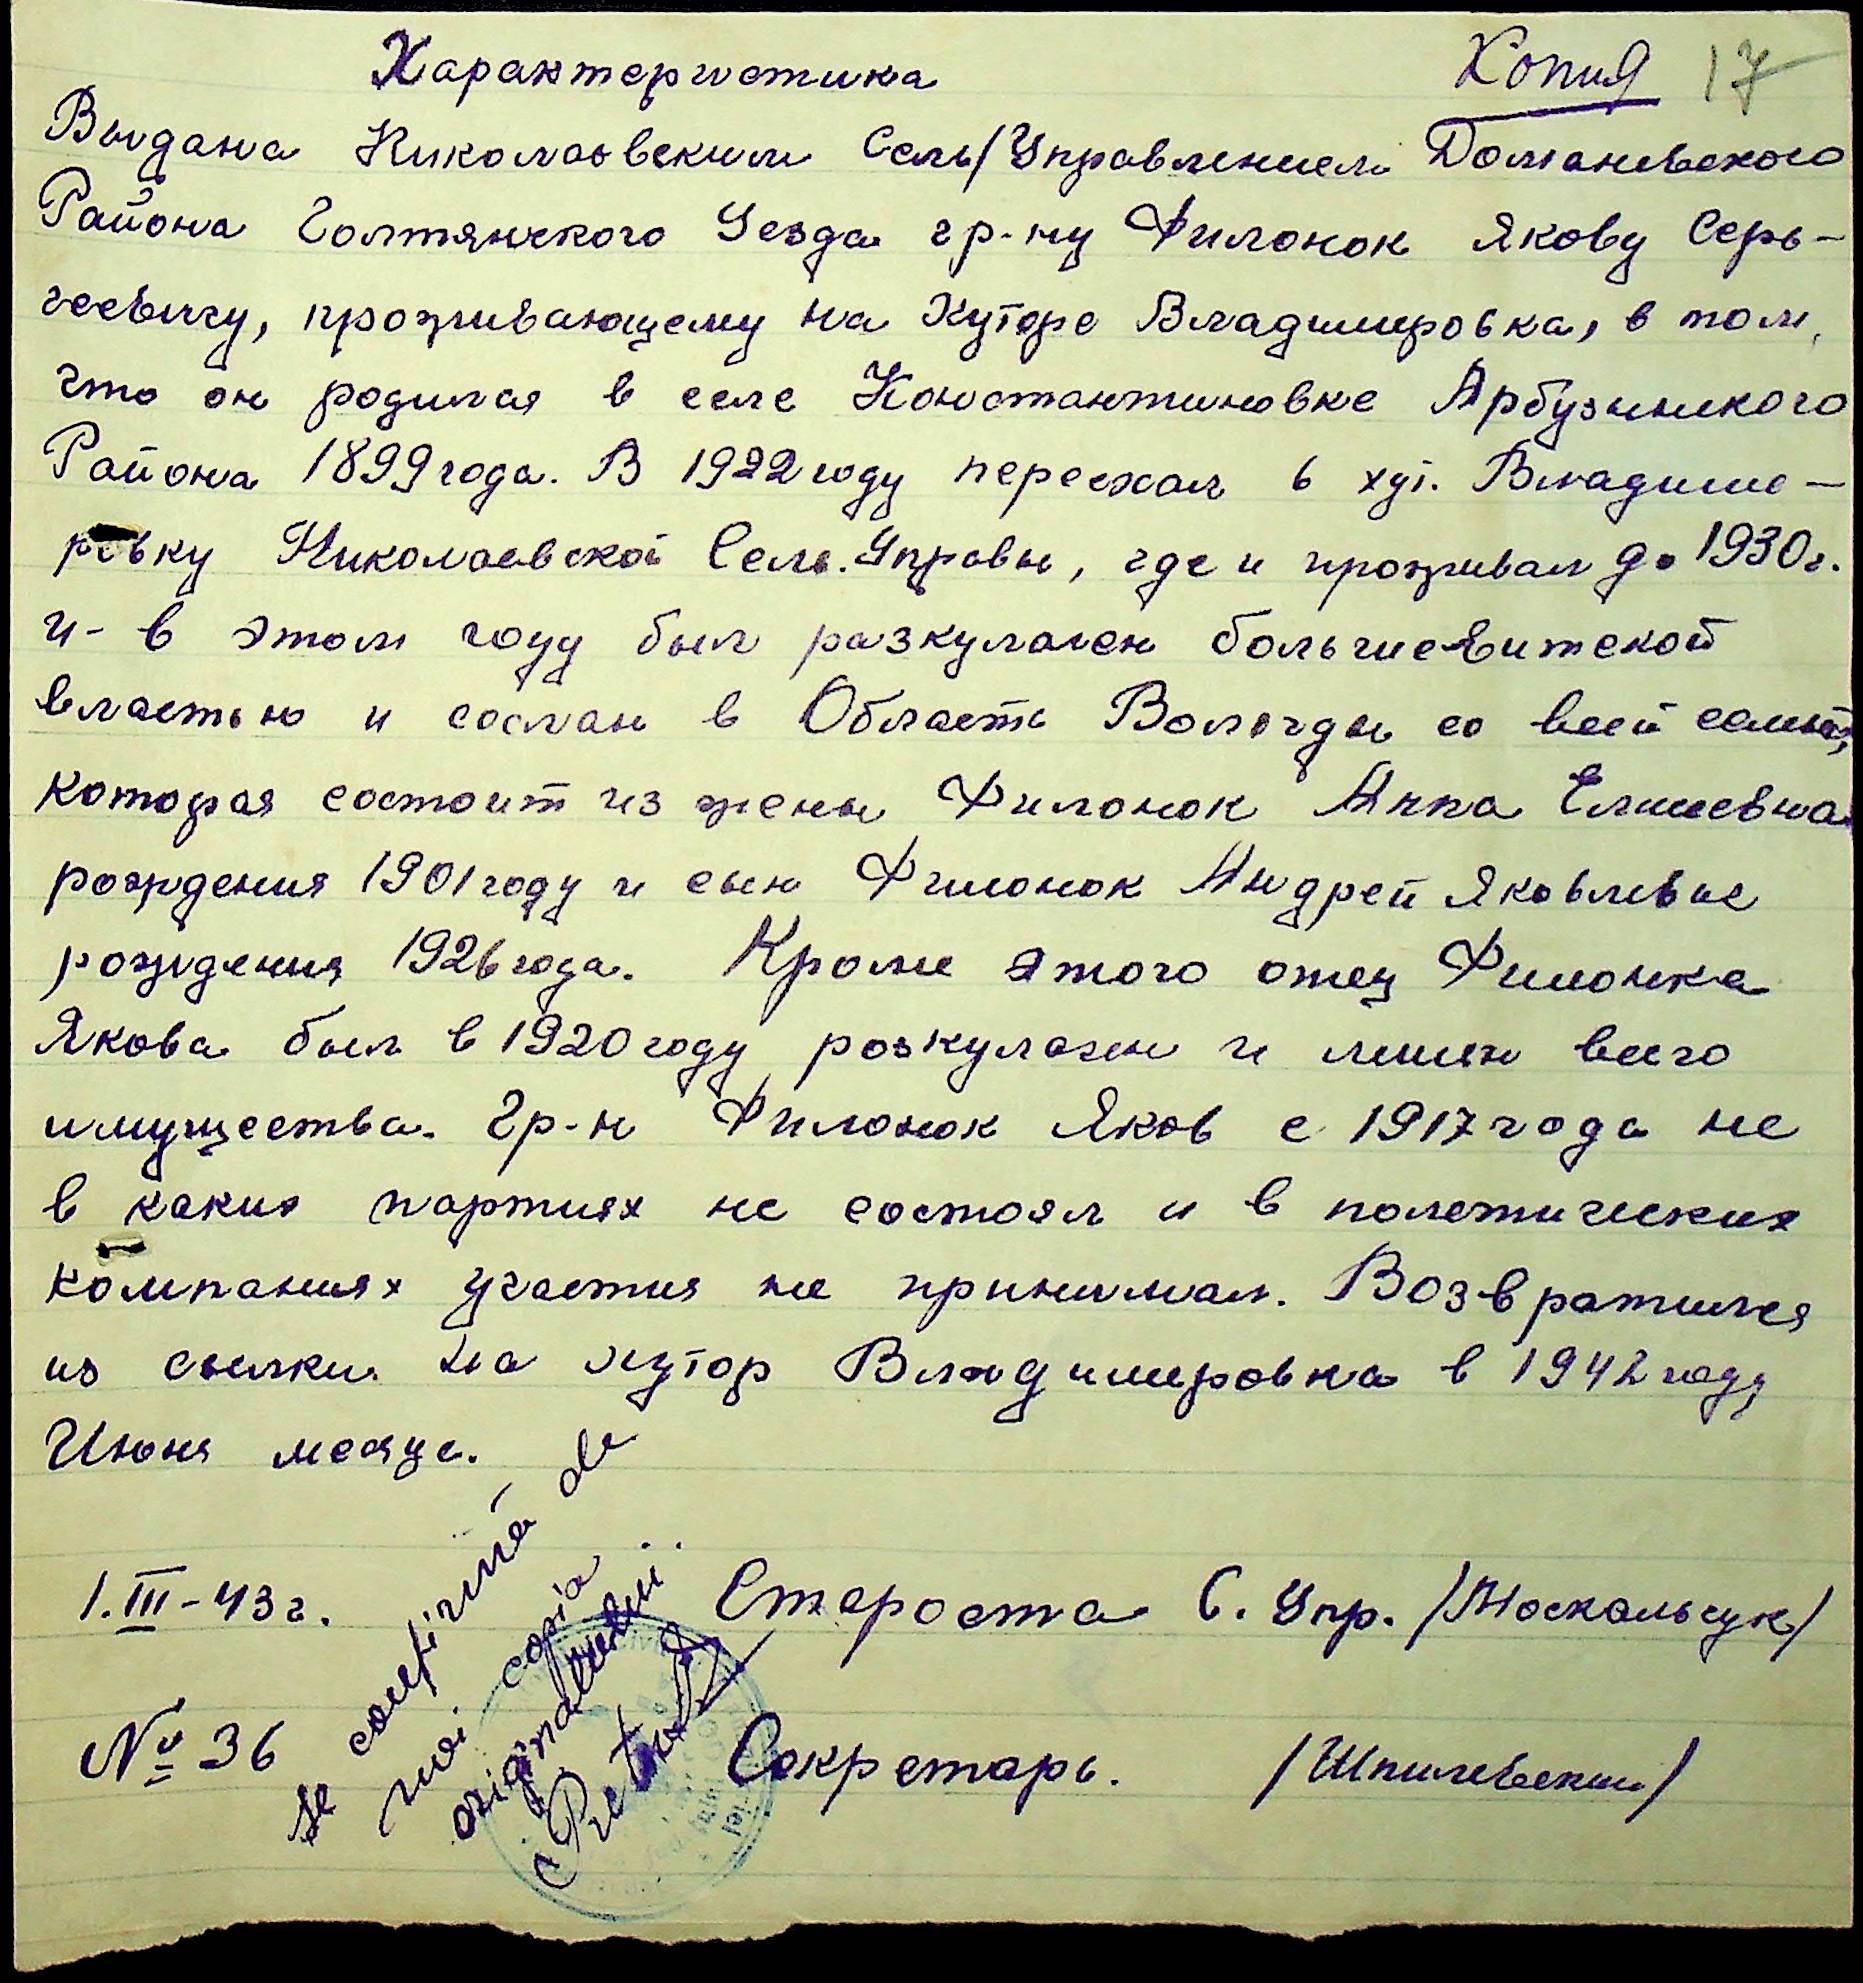 Характеристика
Копия 17
Выдана Николаевским Сель/Управлением Доманевского
Района Голтянского Уезда гр-ну Филонок Якову Серь-
геевичу, проживающему на Хуторе Владимировка, в том,
что он родился в селе Константиновке Арбузинского
Района 1899 года. В 1922 году переехал в хут. Владими-
ровку Николаевской Сель. Управы, где и проживал до 1930 г.
и - в этом году был разкулачен большиевитской
властью и сослан в Область Вологды со всей семьей,
которая состоит из жены Филонок Анна Елисеевна
рождения 1901 году и сын Филонок Андрей Яковлевые
рождения 1926 года. Кроме этого отец Филонка
Якова был в 1920 году розкулачен и лишен всего
имущества. Гр-н Филонок Яков с 1917 года не
в каких партиях не состоял и в полетических
компаниях участия не принимал. Возвратился
из сылки на хутор Владимировка в 1942 году
Июня месяца.
1.III-43 г.
Староста С. Упр. /Москальчук/
№ 36
Секретарь. /Шпилевский/
Se confirmă de
noi copia
originalului
Petru